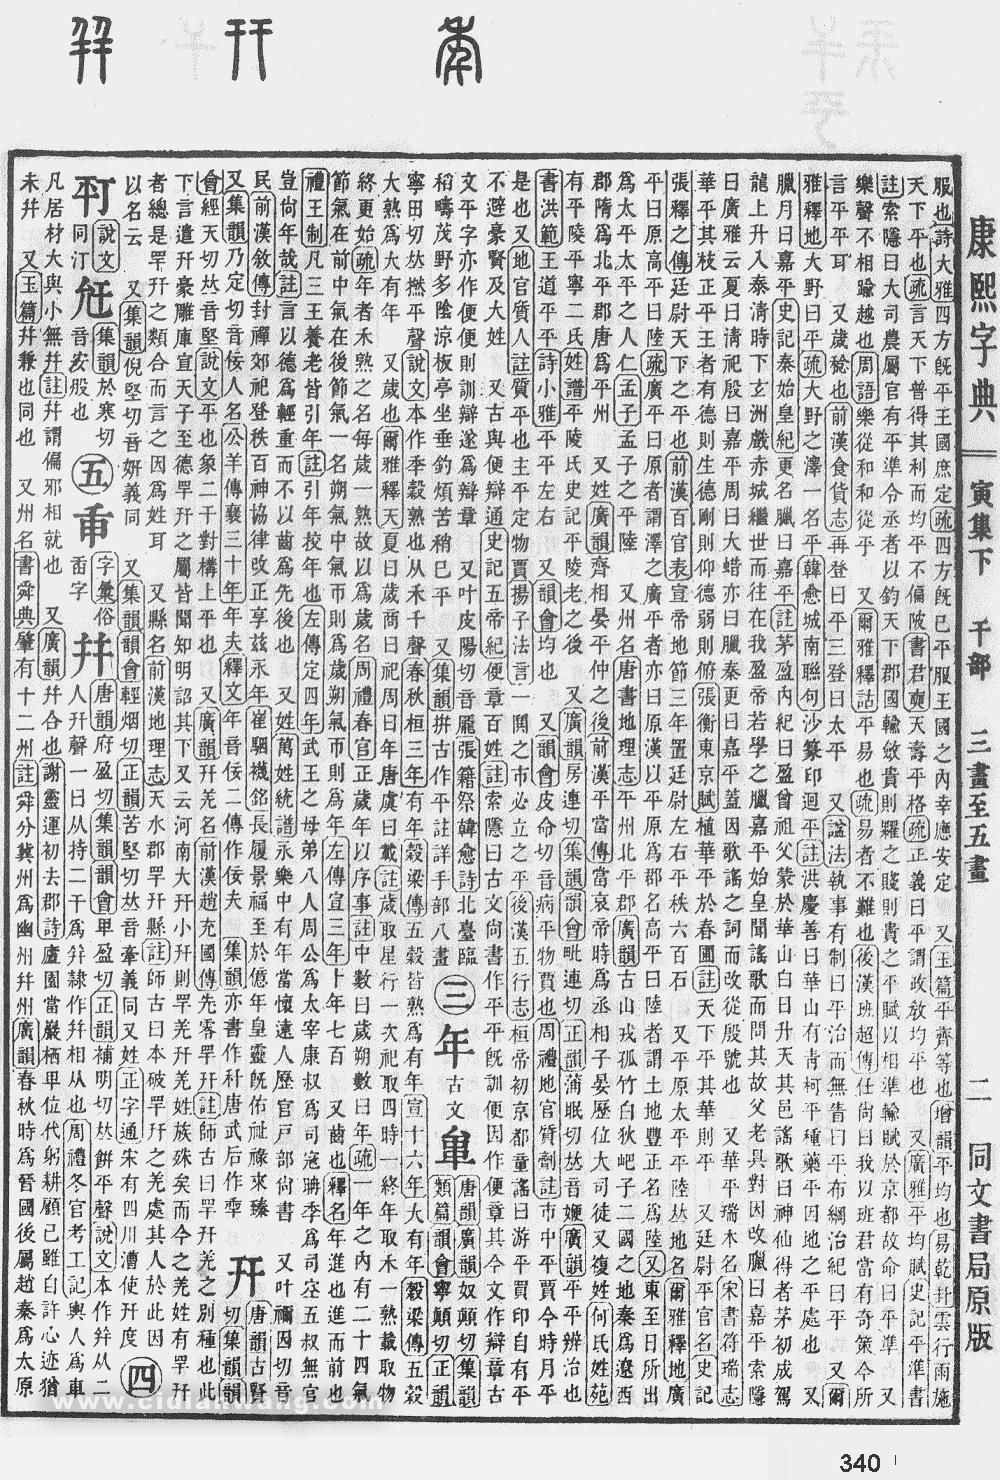 康熙字典
寅集下 干部 三畫至五畫
二
同文書局原版
服也詩大雅四方旣平王國庶定疏四方旣已平服王國之內幸應安定 又玉篇平齊等也增韻平均也易乾卦雲行雨施
天下平也疏言天下普得其利而均平不偏陂書君奭天壽平格疏正義曰平謂政敎均平也 又廣雅平均賦史記平準書
註索隱曰大司農屬官有平準令丞者以鈞天下郡國輸斂貴則糶之賤則買之平賦以相準輸歸於京都故命曰平準 又
樂聲不相踰越也周語樂從和和從平 又爾雅釋詁平易也疏易者不難也後漢班超傳任尚曰我以班君當有奇策今所
言平平耳 又歲稔也前漢食貨志再登曰平三登曰太平 又諡法執事有制曰平治而無眚曰平布綱治紀曰平 又爾
雅釋地大野曰平疏大野之澤一名平韓愈城南聯句沙篆印迴平註洪慶善曰華山有靑柯平種藥平因地之平處也 又
臘月曰嘉平史記秦始皇紀更名臘曰嘉平註茅盈內紀曰盈曾祖父蒙於華山白日升天其邑謠歌曰神仙得者茅初成駕
龍上升入泰淸時下玄洲戲赤城繼世而往在我盈帝若學之臘嘉平始皇聞謠歌而問其故父老具對因改臘曰嘉平索隱
曰廣雅云夏曰淸祀殷曰嘉平周曰大蜡亦曰臘秦更曰嘉平蓋因歌謠之詞而改從殷號也 又華平瑞木名宋書符瑞志
華平其枝正平王者有德則生德剛則仰德弱則俯張衡東京賦植華平於春圃註天下平其華則平 又廷尉平官名史記
張釋之傳廷尉天下之平也前漢百官表宣帝地節三年置廷尉左右平秩六百石 又平原太平平陸𠀤地名爾雅釋地廣
平曰原高平曰陸疏廣平曰原者謂澤之廣平者亦曰原漢以平原爲郡名高平曰陸者謂土地豐正名爲陸又東至日所出
爲太平太平之人仁孟子孟子之平陸 又州名唐書地理志平州北平郡廣韻古山戎孤竹白狄肥子二國之地秦爲遼西
郡隋爲北平郡唐爲平州 又姓廣韻齊相晏平仲之後前漢平當傳當哀帝時爲丞相子晏歷位大司徒又復姓何氏姓苑
有平陵平寧二氏姓譜平陵氏史記平陵老之後 又廣韻房連切集韻韻會毗連切正韻蒲眠切𠀤音㛹廣韻平平辨治也
書洪範王道平平詩小雅平平左右 又韻會均也 又韻會皮命切音病平物賈也周禮地官質劑註市中平賈今時月平
是也又地官質人註質平也主平定物賈揚子法言一鬨之市必立之平後漢五行志桓帝初京都童謠曰游平賣印自有平
不避豪賢及大姓 又古與便辯通史記五帝紀便章百姓註索隱曰古文尙書作平平旣訓便因作便章其今文作辯章古
文平字亦作便便則訓辯遂爲辯章 又叶皮陽切音龐張籍祭韓愈詩北臺臨稻疇茂野多陰涼板亭坐垂釣煩苦稍已平 又集韻拚古作平註詳手部八畫
三 年 古文秊 唐韻廣韻奴顚切集韻類篇韻會寧顚切正韻
寧田切𠀤撚平聲說文本作秊穀熟也从禾千聲春秋桓三年有年穀梁傳五穀皆熟爲有年宣十六年大有年穀梁傳五穀
大熟爲大有年 又歲也爾雅釋天夏曰歲商曰祀周曰年唐虞曰載註歲取星行一次祀取四時一終年取禾一熟載取物
終更始疏年者禾熟之名每歲一熟故以爲歲名周禮春官正歲年以序事註中數曰歲朔數曰年疏一年之內有二十四氣
節氣在前中氣在後節氣一名朔氣中氣帀則爲歲朔氣帀則爲年左傳宣三年卜年七百 又齒也釋名年進也進而前也
禮王制凡三王養老皆引年註引年校年也左傳定四年武王之母弟八人周公爲太宰康叔爲司寇聃季爲司空五叔無官
豈尙年哉註言以德爲輕重而不以齒爲先後也 又姓萬姓統譜永樂中有年當懷遠人歷官戸部尙書 又叶禰因切音
民前漢敘傳封禪郊祀登秩百神協律改正享茲永年崔駰襪銘長履景福至於億年皇靈旣佑祉祿來臻
又集韻乃定切音佞人名公羊傳襄三十年年夫釋文年音佞二傳作佞夫 集韻亦書作秊唐武后作𠡦
幵 唐韻古賢切集韻韻會經天切𠀤音堅說文平也象二干對構上平也 又廣韻幵羌名前漢趙充國傳先零罕幵註師古曰罕幵羌之別種也此
下言遣幵豪雕庫宣天子至德罕幵之屬皆聞知明詔其下又云河南大幵小幵則罕羌幵羌姓族殊矣而今之羌姓有罕幵
者總是罕幵之類合而言之因爲姓耳 又縣名前漢地理志天水郡罕幵縣註師古曰本破罕幵之羌處其人於此因
以名云 又集韻倪堅切音姸義同 又集韻韻會輕烟切正韻苦堅切𠀤音牽義同又姓正字通宋有四川漕使幵度 四
㓝 說文同汀
集韻於寒切音安股也
五
字彙俗靣字
幷 唐韻府盈切集韻韻會卑盈切正韻補明切𠀤餠平聲說文本作幷从二人幵聲一曰从持二干爲幷隸作并相从也周禮冬官考工記輿人爲車
凡居材大與小無幷註幷謂偏邪相就也 又廣韻幷合也謝靈運初去郡詩廬園當巖栖卑位代躬耕顧已雖自許心迹猶
未幷 又玉篇幷兼也同也 又州名書舜典肇有十二州註舜分冀州爲幽州幷州廣韻春秋時爲晉國後屬趙秦爲太原
www.cidianwang.com
340